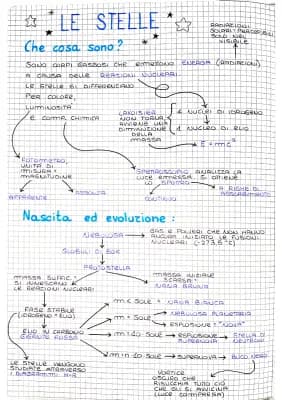 LE STELLE
RADIAZIONI
SOLARI PERCEPIBILI
SOLO NEL
VISIBILE
Che cosa sono?
SONO CORPI GASSOSI CHE EMETTONO ENERGIA (RADIAZIONI)
A CAUSA DELLE REAZIONI NUCLEARI.
LE STELLE SI DIFFERENZIANO
PER COLORE,
LUMINOSITÀ
E COMP. CHIMICA
NON TORNA
AVVIENE UNA
DIMINUZIONE
DELLA
MASSA
4 NUCLEI DI IDROGENO
1 NUCLEO DI ELIO
E = mc²
FOTOMETRO,
UNITÀ DI
MISURA:
MAGNITUDINE
APPARENTE
ASSOLUTA
SPETTROSCOPIO ANALIZZA LA
LUCE EMESSA. SI OTTIENE
LO SPETTRO
CONTINUO
A RIGHE DI
ASSORBIMENTO
Nascita ed evoluzione:
NEBULOSA
GAS E POLVERI CHE NON HANNO
ANCORA INIZIATO LE FUSIONI
NUCLEARI (-273,5 °C)
GLOBULI DI BOK
PROTOSTELLA
MASSA SUFFIC.
SI INNESCANO
LE REAZIONI NUCLEARI
MASSA INIZIALE
SCARSA:
NANA BRUNA
FASE STABILE
(IDROGENO - ELIO)
ELIO IN CARBONIO
GIGANTE ROSSA
m < SOLE
NANA BIANCA
m = SOLE
NEBULOSA PLANETARIA
ESPLOSIONE: "NOVA"
m > 10 SOLE
ESPLOSIONE
SUPERNOVA
STELLA DI
NEUTRONI
SOLE
SUPERNOVA
BUCO NERO
LE STELLE VENGONO
STUDIATE ATTRAVERSO
I DIAGRAMMI H-R
VORTICE
OSCURO CHE
RISUCCHIA TUTTO CIÒ
CHE GLI SI AVVICINA
(LUCE COMPRESA)